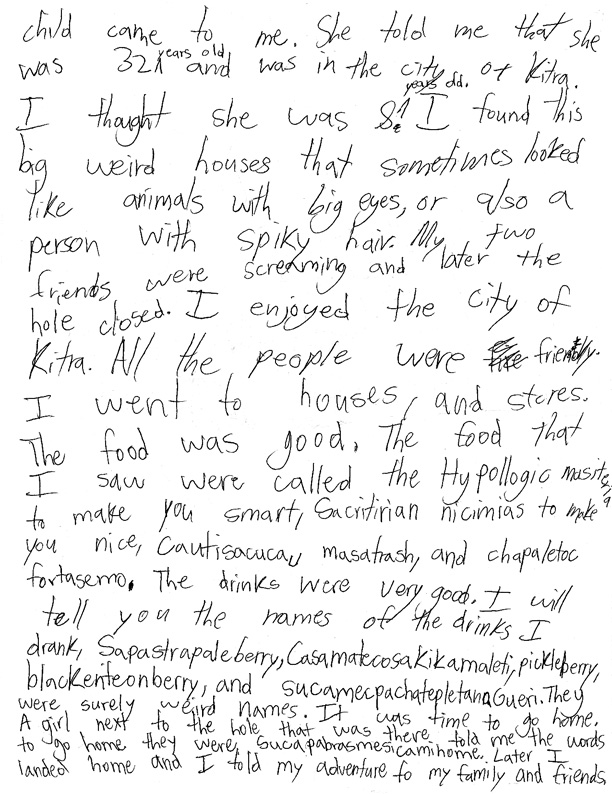 child came to me. She told me that she
was 321 years old and was in the city of Kitra.
I thought she was 8 years old. I found this
big weird houses that sometimes looked
like animals with big eyes, or also a
person with spiky hair. My two
friends were screaming and later the
hole closed. I enjoyed the city of
Kitra. All the people were friendly.
I went to houses, and stores.
The food was good. The food that
I saw were called the Hypollogic
to make you smart, Sacritirian nicimias to make
you nice, Cautisacucau masatrash, and chapaletoc
fortasemo. The drinks were very good. I will
tell you the names of the drinks I
drank, Sapastrapaleberry, Casamatecosakikamaleti, pickleberry,
blackenteonberry, and sucamecpachatepletanaGueri. They
were surely weird names. It was time to go home.
A girl next to the hole that was there told me the words
to go home they were, Sucapabrasmesicamihome. Later I
landed home and I told my adventure to my family and friends